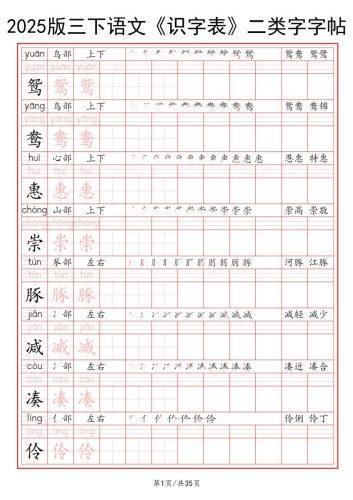 2025版三下语文《识字表》二类字字帖
yuān 鸟部 上下 鸳鸯 鸳鸳
yuān yuān yuān
鸳 鸳 鸳
yāng 鸟部 上下 鸯鸯 鸯锦
yāng yāng yāng
鸯 鸯 鸯
huì 心部 上下 恩惠 特惠
huì huì huì
惠 惠 惠
chóng 山部 上下 崇高 崇敬
chóng chóng chóng
崇 崇 崇
tún 豕部 左右 河豚 江豚
tún tún tún
豚 豚 豚
jiǎn 冫部 左右 减轻 减少
jiǎn jiǎn jiǎn
减 减 减
còu 冫部 左右 凑近 凑合
còu còu còu
凑 凑 凑
líng 亻部 左右 伶俐 伶丁
líng líng líng
伶 伶 伶
第1页/共35页